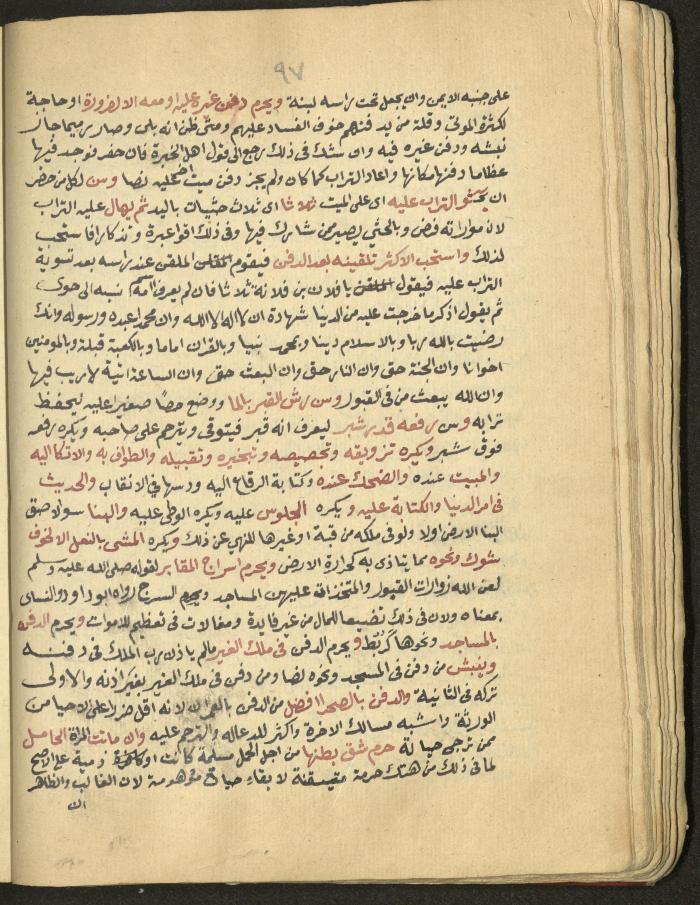 ٩٧
على جنبه الايمن وان يجعل تحت راسه لبنة ويحرم دفن غيره عليه او معه الا لضرورة او حاجة
لكثرة الموتى وقلة من يدفنهم خوف الفساد عليهم ومتى ظن انه بلى وصار رميما جاز
نبشه ودفن غيره فيه وان شك في ذلك رجع الى قول اهل الخبرة فان حفر فوجد فيها
عظاما دفنها مكانها واعاد التراب كما كان ولم يجز دفن ميت اخر عليه نصا وسن لكل من حضر
ان يحثو التراب عليه اى على الميت ثلاثا اى ثلاث حثيات باليد ثم يهال عليه التراب
لان مواراته فرض وبالحثي يصير ممن شارك فيها وفى ذلك اقوى عبرة وتذكارا فاستحب
لذلك واستحب الاكثر تلقينه بعد الدفن فيقوم الملقن عند راسه بعد تسوية
التراب عليه فيقول يا فلان بن فلانة ثلاثا فان لم يعرف امه نسبه الى حوى
ثم يقول اذكر ما خرجت عليه من الدنيا شهادة ان لا اله الا الله وان محمدا عبده ورسوله وانك
رضيت بالله ربا وبالاسلام دينا وبمحمد نبيا وبالقران اماما وبالكعبة قبلة وبالمومنين
اخوانا وان الجنة حق وان النار حق وان البعث حق وان الساعة اتية لا ريب فيها
وان الله يبعث من فى القبور وسن رش القبر بالما ووضع حصا صغير عليه ليحفظ
ترابه وسن رفعه قدر شبر ليعرف انه قبر فيتوقى ويترحم على صاحبه ويكره رفعه
فوق شبر ويكره تزويقه وتجصيصه وتبخيره وتقبيله والطواف به والاتكا اليه
والمبيت عنده والضحك عنده وكتابة الرقاع اليه ودسها في الانقاب والحديث
فى امر الدنيا والكتابة عليه ويكره الجلوس عليه ويكره الوطى عليه والبنا سوا لاصق
البنا الارض اولا ولو فى ملكه من قبة او غيرها للنهي عن ذلك ويكره المشى بالنعل الا لخوف
شوك ونحوه مما يتاذى به كحرارة الارض ويحرم اسراج المقابر لقوله صلى الله عليه وسلم
لعن الله زوارات القبور والمتخذات عليهن المساجد والسرج رواه ابو داود والنسائ
بمعناه ولان فى ذلك تضييعا للمال من غير فايدة ومغالات فى تعظيم للاموات ويحرم الدفن
بالمساجد ونحوها كربط ويحرم الدفن فى ملك الغير مالم ياذن رب الملك فى دفنه
وينبش من دفن فى المسجد ونحوه نصا ومن دفن فى ملك الغير بغير اذنه والاولى
تركه فى الثانية والدفن بالصحرا افضل من الدفن بالعمران لانه اقل ضررا على الاحيا من
الورثة واشبه مسالك الاخرة واكثر للدعا له والترحم عليه وان ماتت المرأة الحامل
ممن ترجى حياته حرم شق بطنها من اجل الحمل مسلمة كانت او ذمية على الاصح
لما فى ذلك من هتك حرمة متيقنة لابقاء حياة موهومة لان الغالب والظاهر
ان